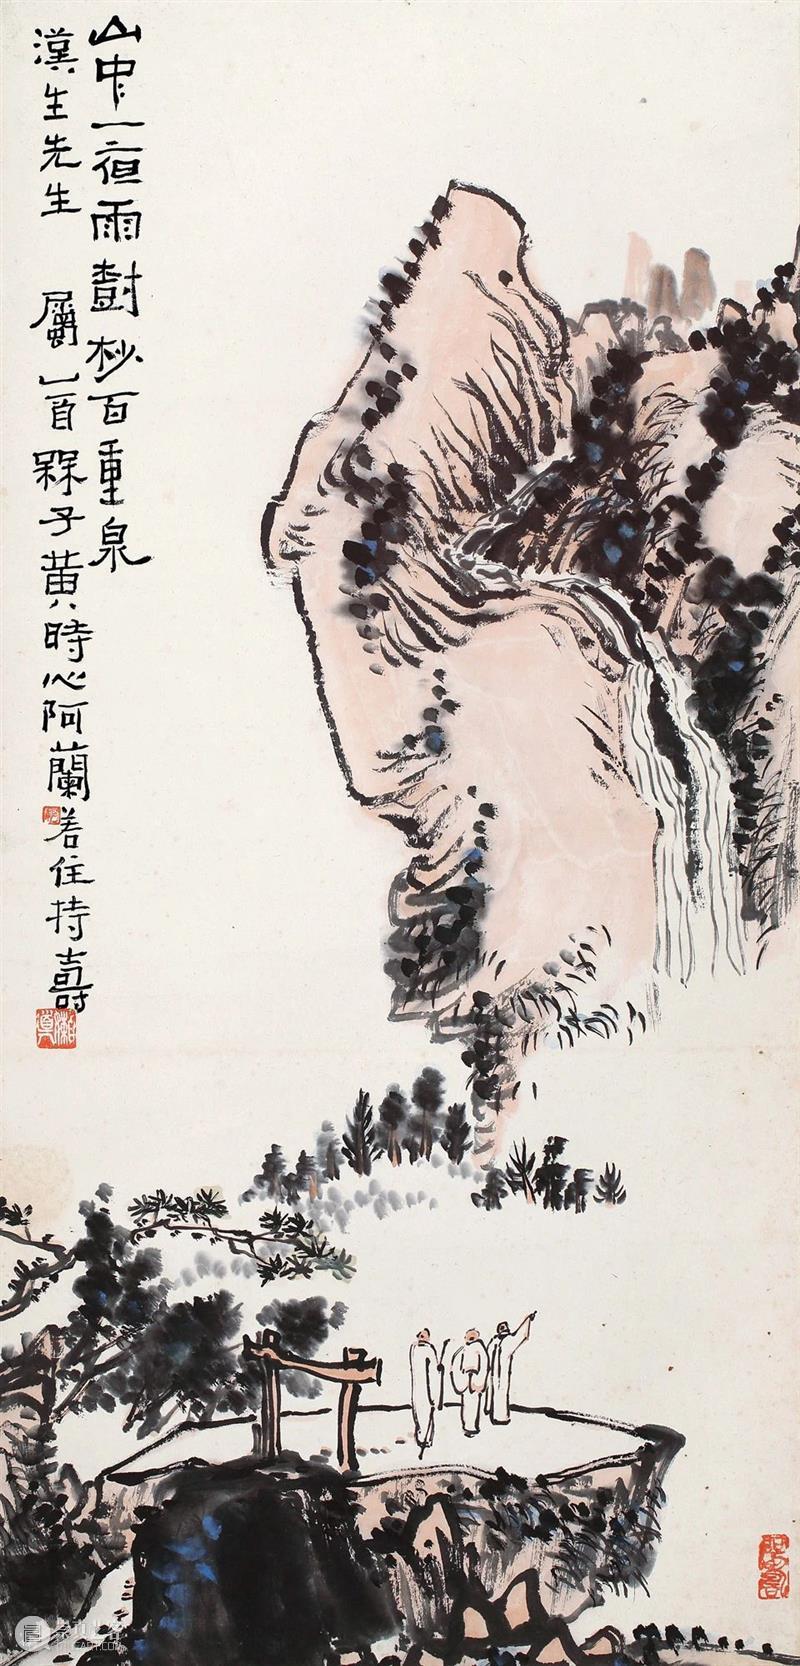 山中一夜雨樹杪百重泉
漢生先生 屬 槑子黄時心阿蘭若住持壽